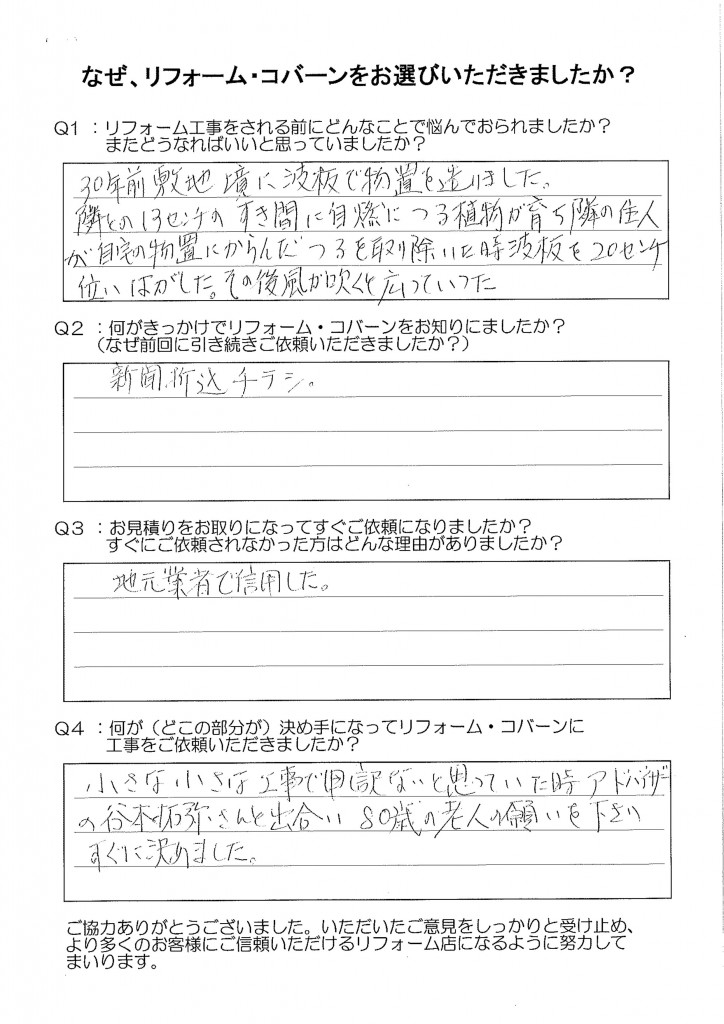 なぜ、リフォーム・コバーンをお選びいただきましたか？
Q1 ：リフォーム工事をされる前にどんなことで悩んでおられましたか？
またどうなればいいと思っていましたか？
30年前敷地境に波板で物置を造りました。
隣との13センチのすき間に自然につる植物が育ち隣の住人
が自宅の物置にからんだつるを取り除いた時波板を20センチ
位いはがした。その後風が吹くと広っていった
Q2 ：何がきっかけでリフォーム・コバーンをお知りにましたか？
（なぜ前回に引き続きご依頼いただきましたか？）
新聞折込チラシ。
Q3 ：お見積りをお取りになってすぐご依頼になりましたか？
すぐにご依頼されなかった方はどんな理由がありましたか？
地元業者で信用した。
Q4 ：何が（どこの部分が）決め手になってリフォーム・コバーンに
工事をご依頼いただきましたか？
小さな小さな工事で申訳ないと思っていた時アドバイザー
の谷本拓弥さんと出合い 80歳の老人の願いを下さい
すぐに決めました。
ご協力ありがとうございました。いただいたご意見をしっかりと受け止め、
より多くのお客様にご信頼いただけるリフォーム店になるように努力して
まいります。